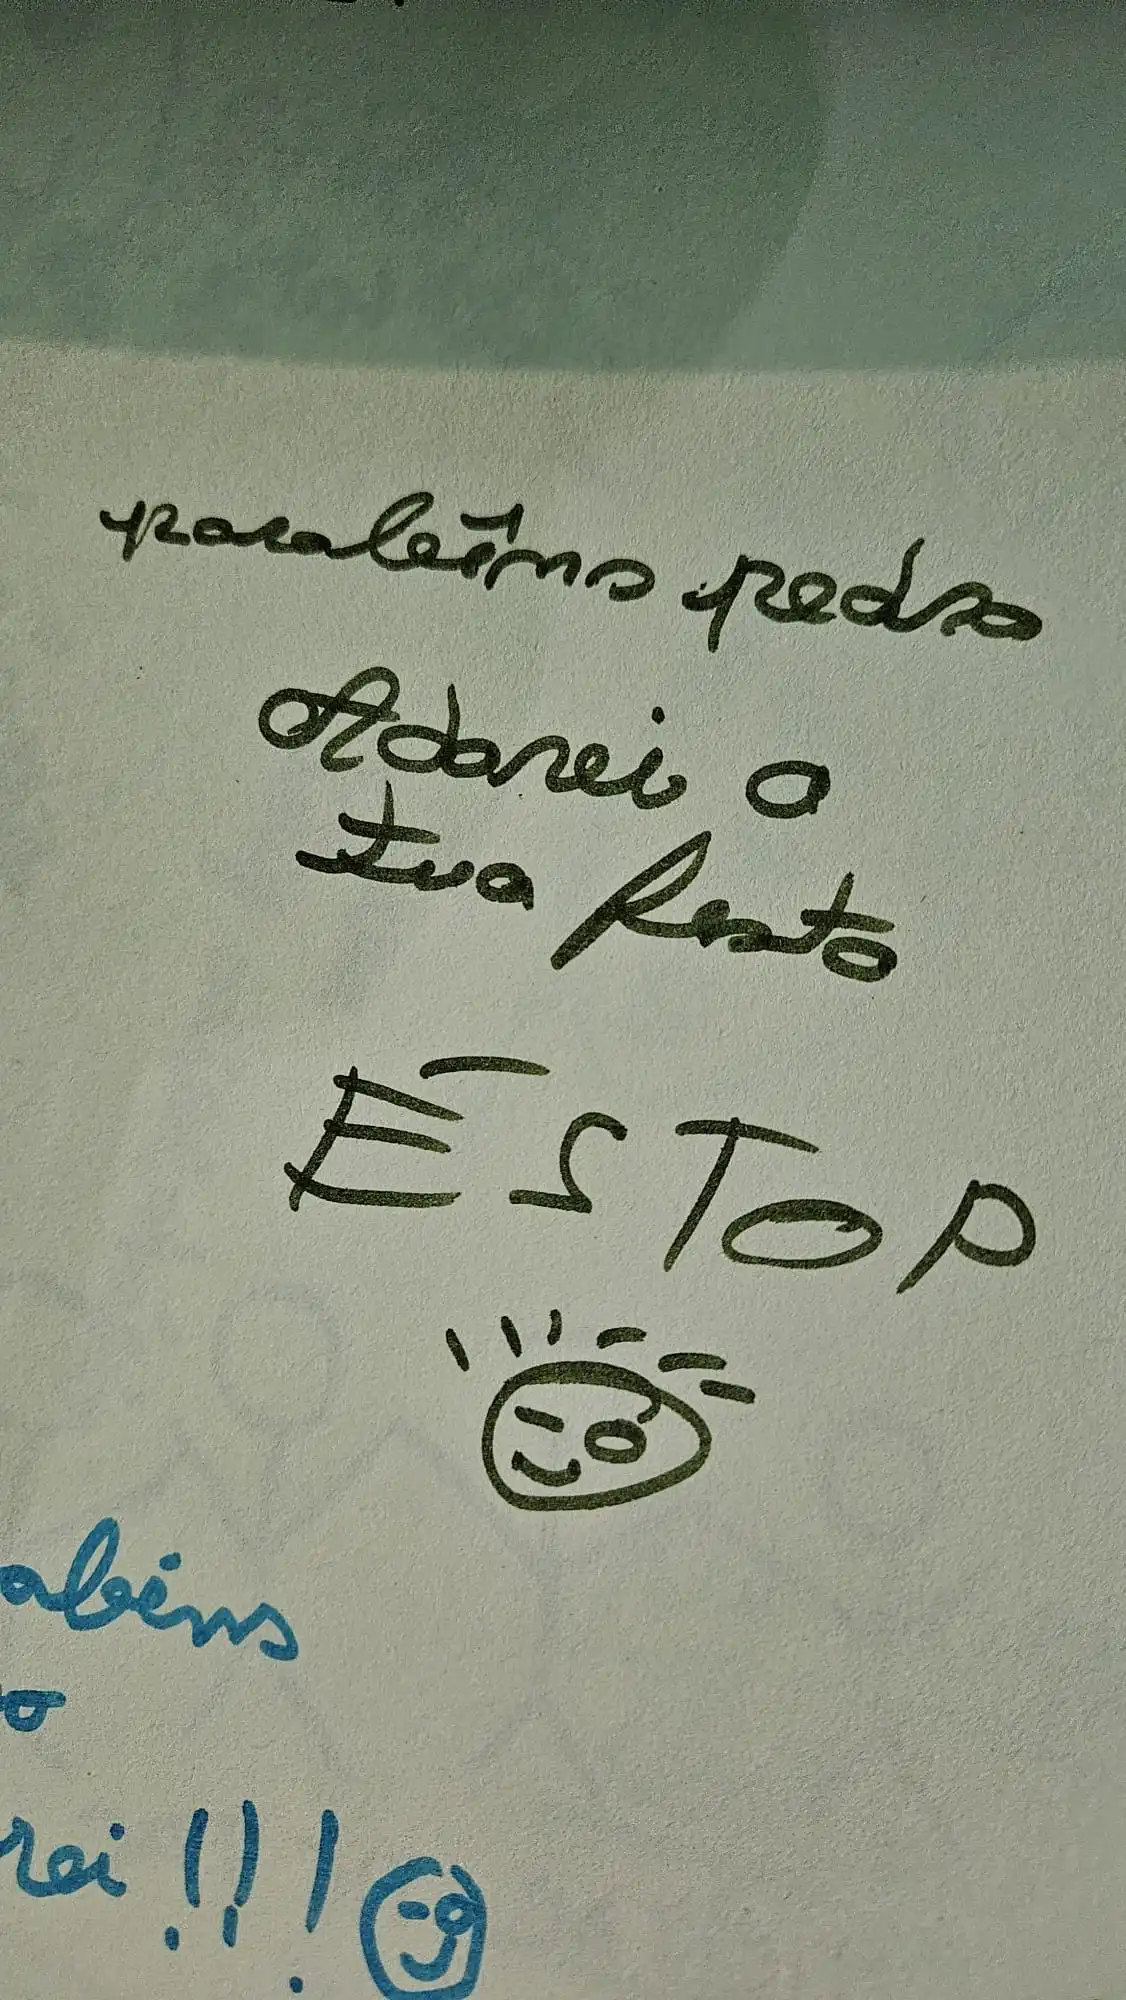 parabéins pedro
Adarei a
tua festa
É STOP
abéns
o
rei !!!